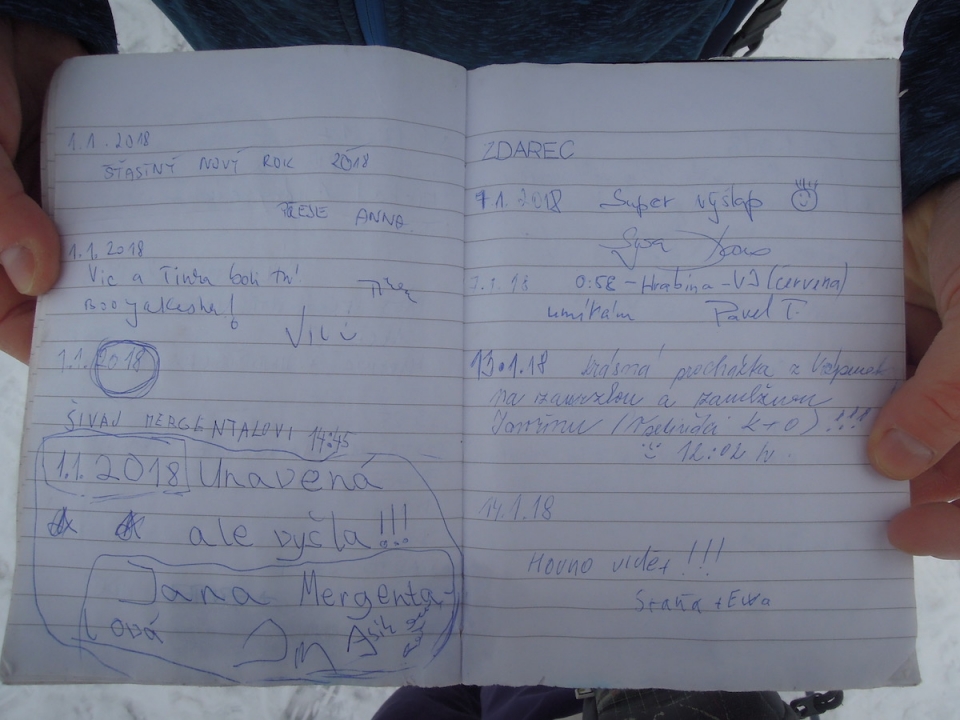 1.1.2018
ŠŤASTNÝ NOVÝ ROK 2018
PŘEJE ANNA
1.1.2018
Vic a Tinka boli tu!
Booyakasha!
Vili
1.1. 2018
ŠIVAJ MERGENTALOVI 14:45
1.1.2018 Unavená
ale vyšla!!!
Jana Mergenta-
ová
ZDAREC
1.1.2018 Super výšlap
7.1.18 0:58 - Hrabina - VJ (červená)
umíkám Pavel T.
13.1.18 krásná procházka z
na zamrzlou a zamlženou
Javořinu ( k+o) !!!
12:02 h.
14.1.18
Hovno vidět!!!
Staňa + Ewa